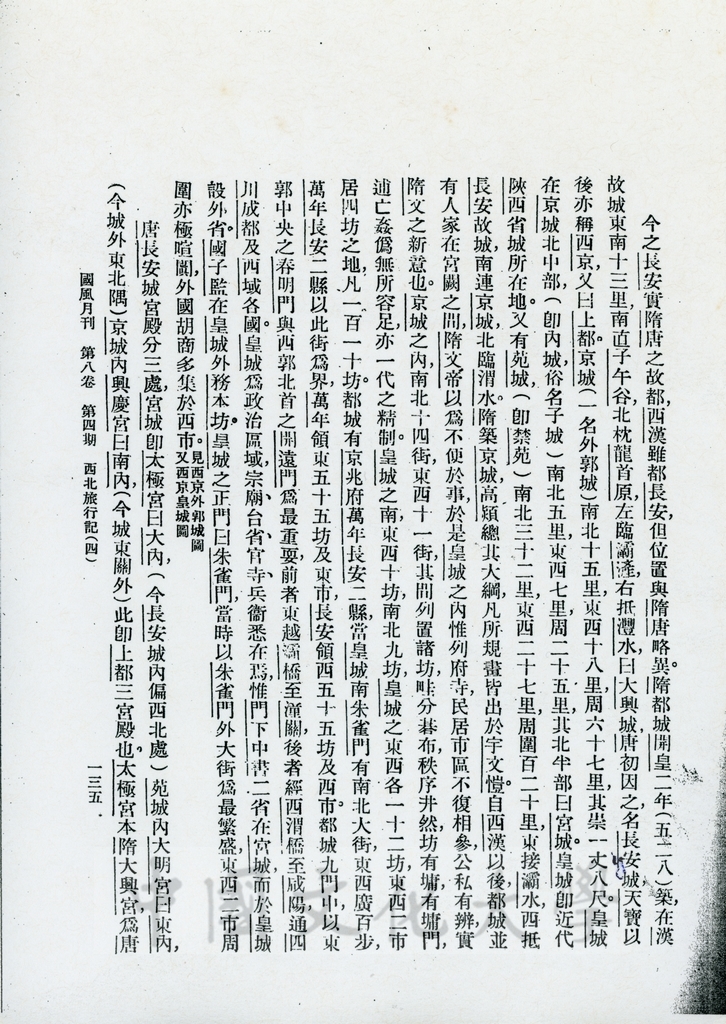 今之長安實隋唐之故都,西漢雖都長安,但位置與隋唐略異。隋都城開皇二年(五二八)築,在漢
故城東南十三里,南直子午谷,北枕龍首原,左臨灞滻,右抵灃水,曰大興城,唐初因之,名長安城,天寶以
後亦稱西京,又曰上都。京城(一名外郭城)南北十五里,東西十八里,周六十七里,其崇一丈八尺。皇城
在京城北中部(卽內城俗名子城)南北五里,東西七里,周二十五里,其北半部曰宮城。皇城卽近代
陝西省城所在地。又有苑城(卽禁苑)南北三十二里,東西二十七里,周圍百二十里,東接灞水,西抵
長安故城,南連京城,北臨渭水。隋築京城,高熲總其大綱,凡所規畫皆出於宇文愷。自西漢以後,都城並
有人家在宮闕之間,隋文帝以爲不便於事,於是皇城之內惟列府寺,民居市區不復相參,公私有辨,實
隋文之新意也。京城之內,南北十四街,東西十一街,其間列置諸坊,畦分碁布,秩序井然,坊有墉,有墉門,
逋亡姦僞,無所容足,亦一代之精制。皇城之南,東西十坊,南北九坊,皇城之東西各一十二坊,東西二市
居四坊之地,凡一百一十坊。都城有京兆府萬年長安二縣,當皇城南朱雀門有南北大街,東西廣百步,
萬年長安二縣以此街爲界,萬年領東五十五坊及東市,長安領西五十五坊及西市。都城九門,中以東
郭中央之春明門與西郭北首之開遠門爲最重要,前者東越灞橋至潼關,後者經西渭橋至咸陽,通四
川成都及西域各國。皇城爲政治區域,宗廟、台省、官寺、兵衞悉在焉,惟門下中書二省在宮城,而於皇城
設外省。國子監在皇城外務本坊。皇城之正門曰朱雀門,當時以朱雀門外大街爲最繁盛,東西二市周
圍亦極喧闐,外國胡商多集於西市。見西京外郭城圖又西京皇城圖
唐長安城宮殿分三處,宮城卽太極宮曰大內,(今長安城內偏西北處)苑城內大明宮曰東內,
(今城外東北隅)京城內興慶宮曰南內,(今城東關外)此卽上都三宮殿也。太極宮本隋大興宮,爲唐
國風月刊 第八卷 第四期 西北旅行記(四)
一三五
中國文化大學